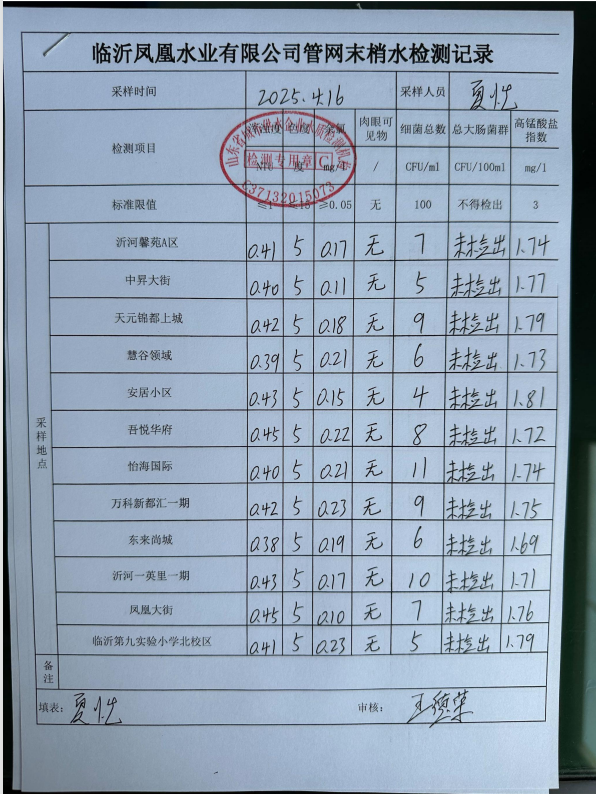 临沂凤凰水业有限公司管网末梢水检测记录
采样时间 2025.4.16 采样人员 夏恍
检测项目 肉眼可见物 细菌总数 总大肠菌群 高锰酸盐指数
NTU 度 mg/l / CFU/ml CFU/100ml mg/l
山东省城市供水企业水质检测机构
检测专用章 C
C37132015073
标准限值 ≤1 ≤15 ≥0.05 无 100 不得检出 3
采样地点
沂河馨苑A区 0.41 5 0.17 无 7 未检出 1.74
中昇大街 0.40 5 0.11 无 5 未检出 1.77
天元锦都上城 0.42 5 0.18 无 9 未检出 1.79
慧谷领域 0.39 5 0.21 无 6 未检出 1.73
安居小区 0.43 5 0.15 无 4 未检出 1.81
吾悦华府 0.45 5 0.22 无 8 未检出 1.72
怡海国际 0.40 5 0.21 无 11 未检出 1.74
万科新都汇一期 0.42 5 0.23 无 9 未检出 1.75
东来尚城 0.38 5 0.19 无 6 未检出 1.69
沂河一英里一期 0.43 5 0.17 无 10 未检出 1.71
凤凰大街 0.45 5 0.10 无 7 未检出 1.76
临沂第九实验小学北校区 0.41 5 0.23 无 5 未检出 1.79
备注
填表: 夏恍 审核: 王德荣